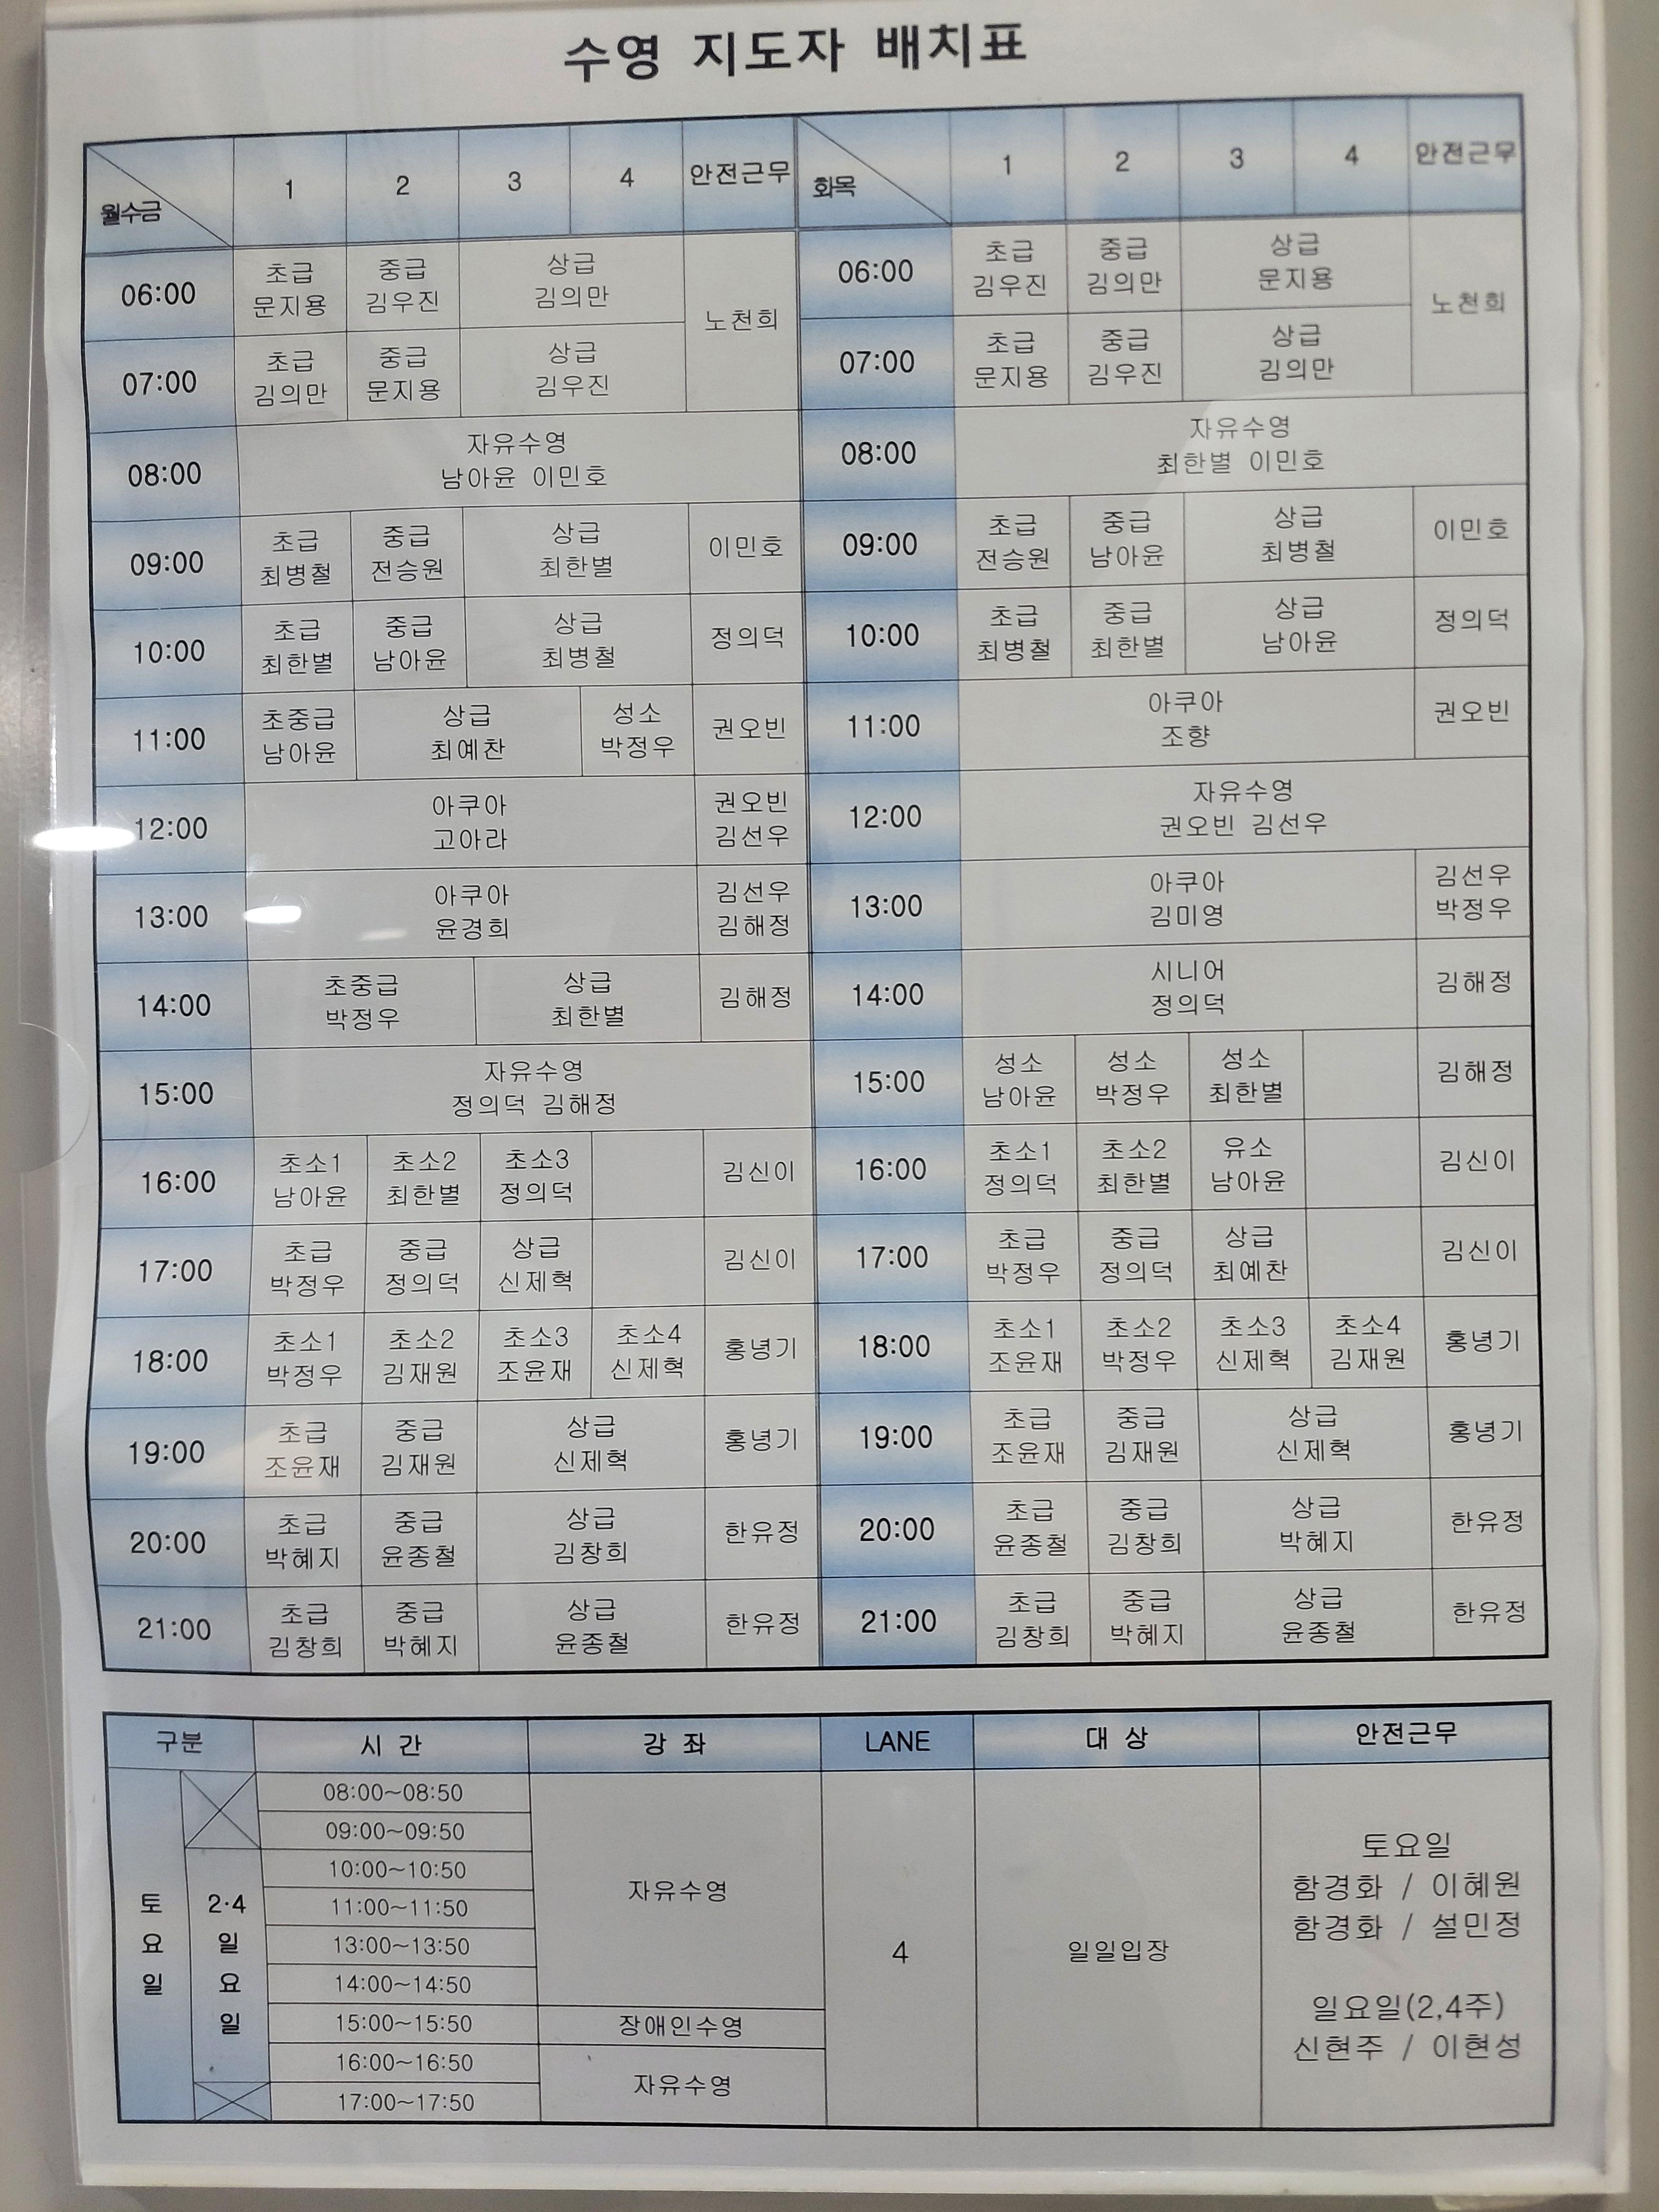 수영 지도자 배치표
월수금 1 2 3 4 안전근무 화목 1 2 3 4 안전근무
06:00 초급 중급 상급 노천희 06:00 초급 중급 상급 노천희
문지용 김우진 김의만 김우진 김의만 문지용
07:00 초급 중급 상급 07:00 초급 중급 상급
김의만 문지용 김우진 문지용 김우진 김의만
08:00 자유수영 08:00 자유수영
남아윤 이민호 최한별 이민호
09:00 초급 중급 상급 이민호 09:00 초급 중급 상급 이민호
최병철 전승원 최한별 전승원 남아윤 최병철
10:00 초급 중급 상급 정의덕 10:00 초급 중급 상급 정의덕
최한별 남아윤 최병철 최병철 최한별 남아윤
11:00 초중급 상급 성소 권오빈 11:00 아쿠아 권오빈
남아윤 최예찬 박정우 조향
12:00 아쿠아 권오빈 12:00 자유수영
고아라 김선우 권오빈 김선우
13:00 아쿠아 김선우 13:00 아쿠아 김선우
윤경희 김해정 김미영 박정우
14:00 초중급 상급 김해정 14:00 시니어 김해정
박정우 최한별 정의덕
15:00 자유수영 15:00 성소 성소 성소 김해정
정의덕 김해정 남아윤 박정우 최한별
16:00 초소1 초소2 초소3 김신이 16:00 초소1 초소2 유소 김신이
남아윤 최한별 정의덕 정의덕 최한별 남아윤
17:00 초급 중급 상급 김신이 17:00 초급 중급 상급 김신이
박정우 정의덕 신제혁 박정우 정의덕 최예찬
18:00 초소1 초소2 초소3 초소4 홍녕기 18:00 초소1 초소2 초소3 초소4 홍녕기
박정우 김재원 조윤재 신제혁 조윤재 박정우 신제혁 김재원
19:00 초급 중급 상급 홍녕기 19:00 초급 중급 상급 홍녕기
조윤재 김재원 신제혁 조윤재 김재원 신제혁
20:00 초급 중급 상급 한유정 20:00 초급 중급 상급 한유정
박혜지 윤종철 김창희 윤종철 김창희 박혜지
21:00 초급 중급 상급 한유정 21:00 초급 중급 상급 한유정
김창희 박혜지 윤종철 김창희 박혜지 윤종철
구분 시 간 강 좌 LANE 대 상 안전근무
토요일
2·4 일요일
08:00~08:50
09:00~09:50
10:00~10:50
11:00~11:50
13:00~13:50
14:00~14:50
15:00~15:50
16:00~16:50
17:00~17:50
자유수영
장애인수영
자유수영
4
일일입장
토요일
함경화 / 이혜원
함경화 / 설민정
일요일(2,4주)
신현주 / 이현성